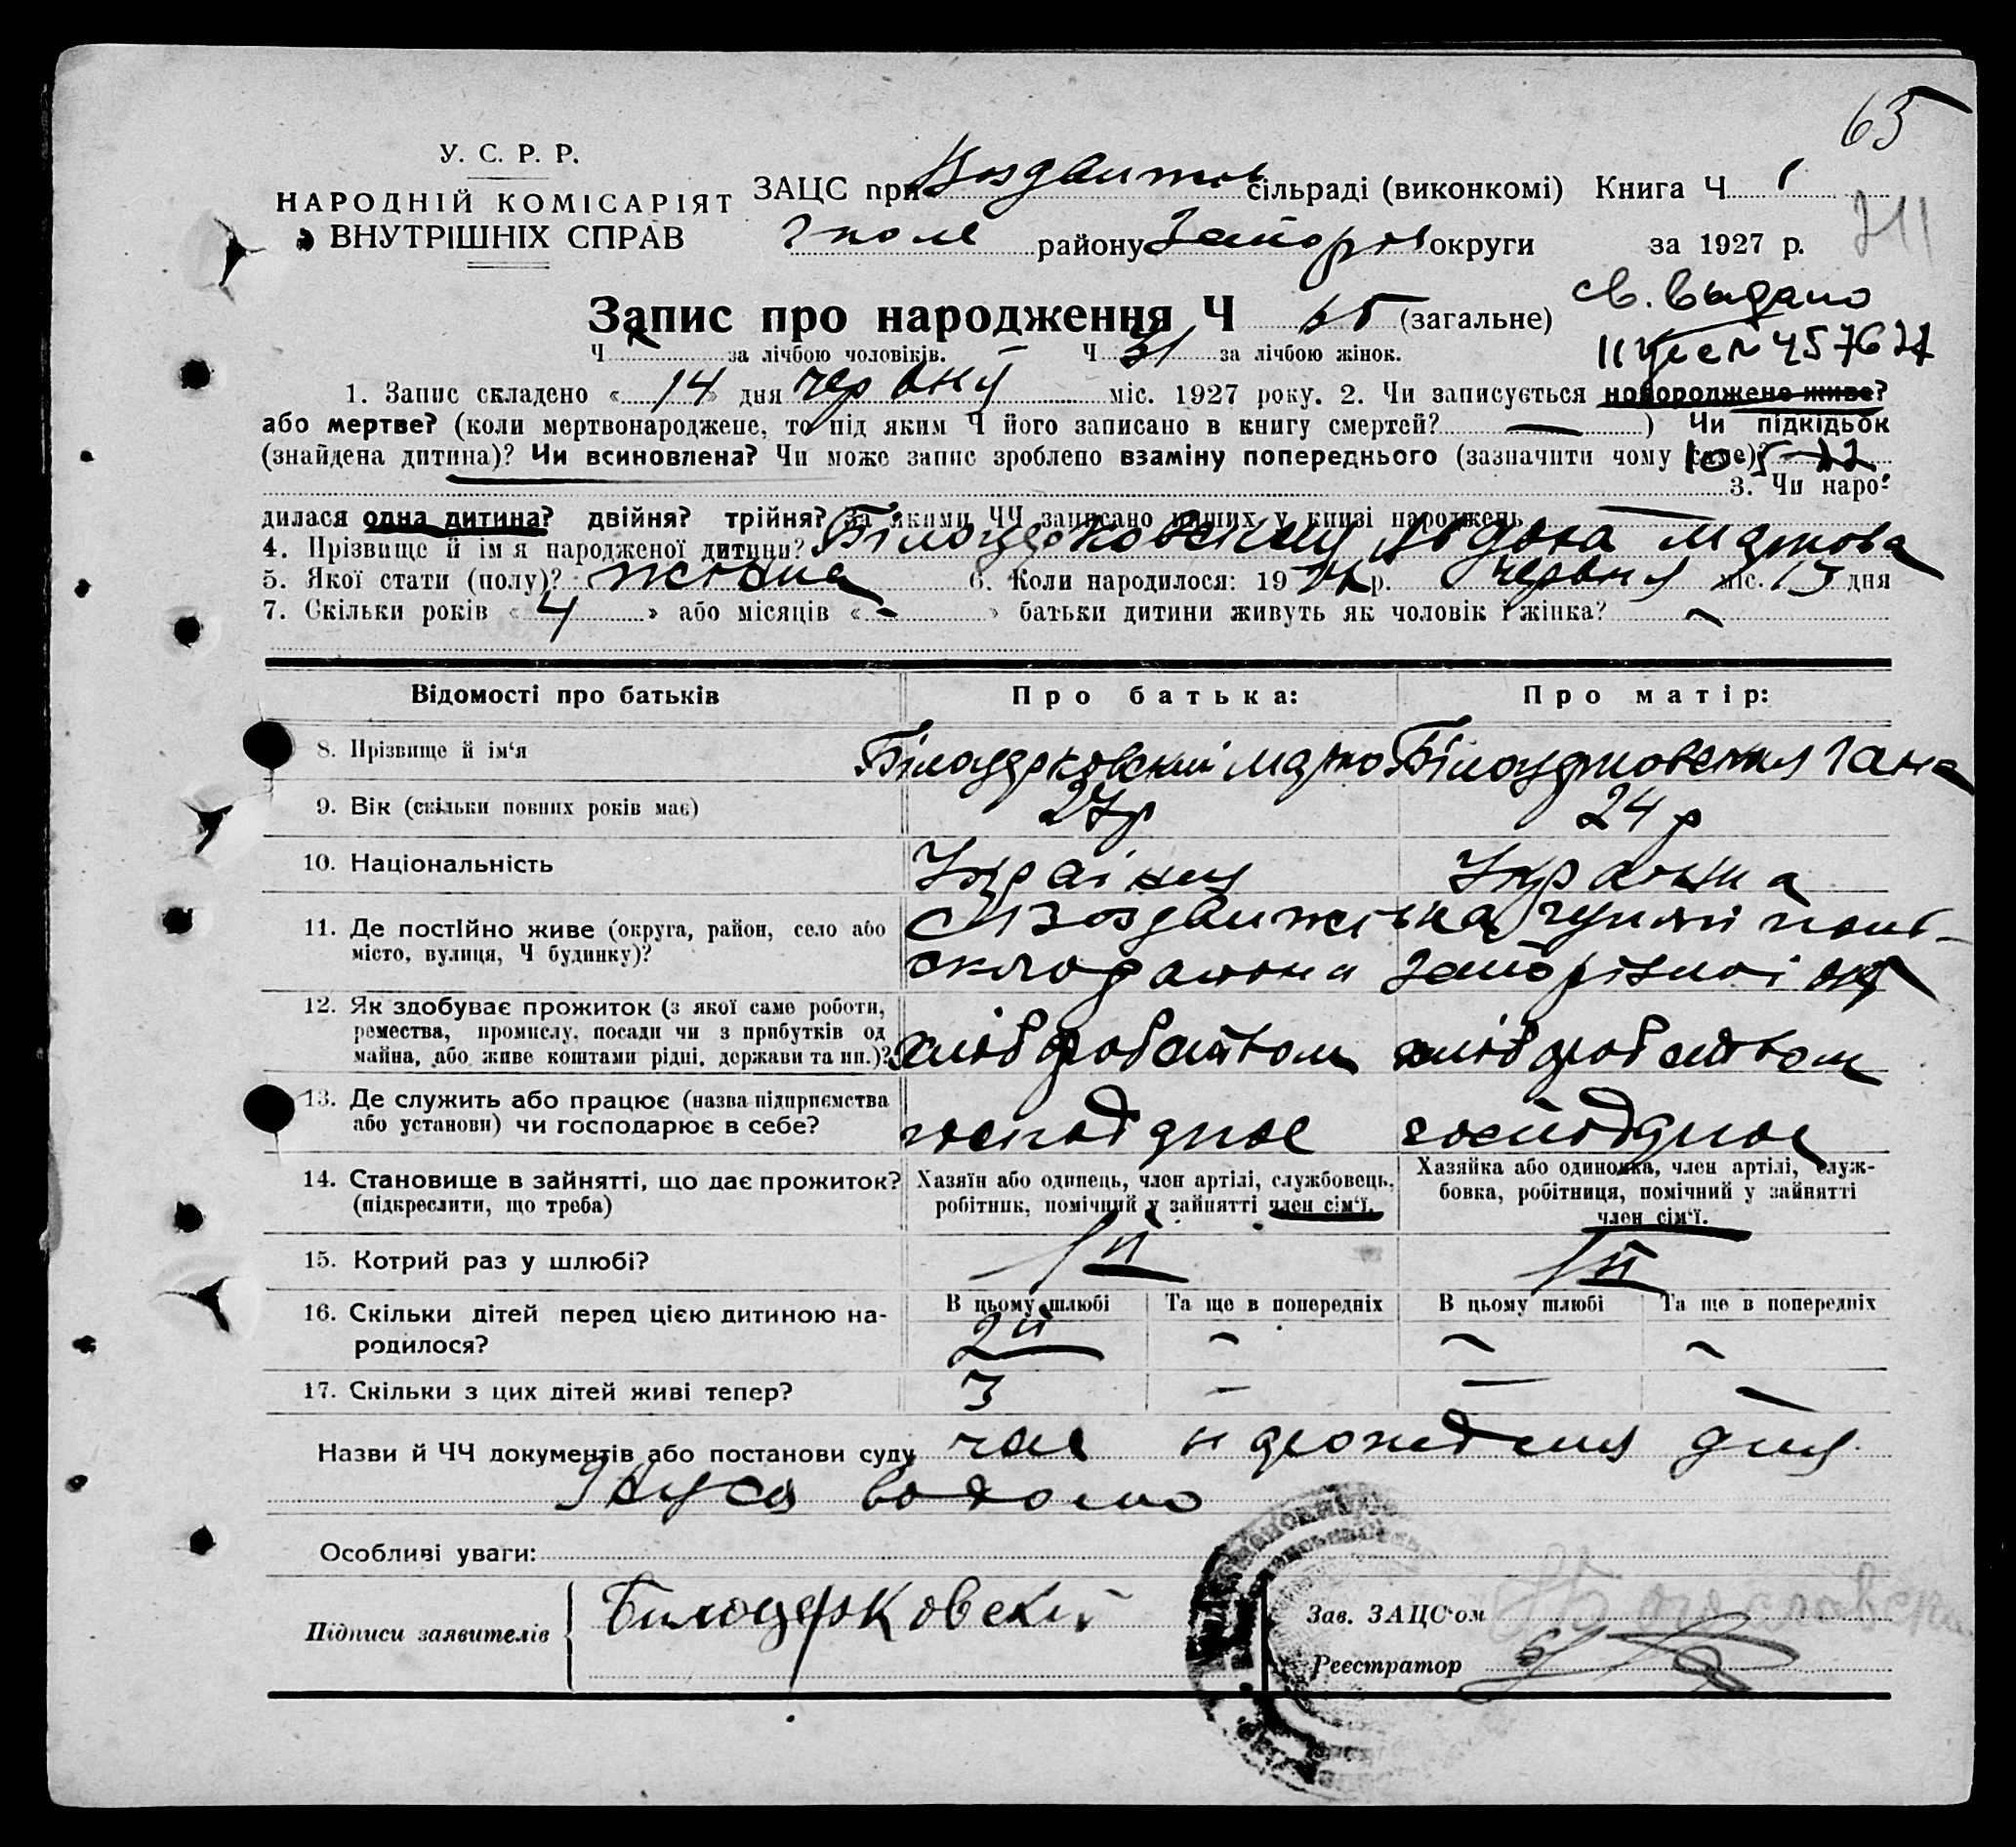 65
У. С. Р. Р.
НАРОДНІЙ КОМІСАРІЯТ
ВНУТРІШНІХ СПРАВ
ЗАЦС при Воздвижов сільраді (виконкомі) Книга Ч 1
району Запоріз округи за 1927 р.
Запис про народження Ч 65 (загальне)
св. выдано
Ч за лічбою чоловіків. Ч 31 за лічбою жінок.
1. Запис складено «14» дня червня міс. 1927 року. 2. Чи записується новороджене живе?
або мертве? (коли мертвонароджене, то під яким Ч його записано в книгу смертей? — ) Чи підкідьок
(знайдена дитина)? Чи всиновлена? Чи може запис зроблено взаміну попереднього (зазначити чому саме)?
3. Чи наро-
дилася одна дитина? двійня? трійня? За якими ЧЧ записано инших у книзі народжень
4. Прізвище й ім'я народженої дитини? Білоцерковская Явдоха Маркова
5. Якої стати (полу)? жіноча 6. Коли народилося: 1927 р. червня міс. 13 дня
7. Скільки років «4» або місяців «-» батьки дитини живуть як чоловік і жінка? -
Відомості про батьків
Про батька:
Про матір:
8. Прізвище й ім'я
Білоцерковский Марко
Білоцерковская Гана
9. Вік (скільки повних років має)
27 р
24 р
10. Національність
Українец
Українка
11. Де постійно живе (округа, район, село або
місто, вулиця, Ч будинку)?
с Воздвижівка Гуляй поль-
ского району Запорізкої окр
12. Як здобуває прожиток (з якої саме роботи,
ремества, промислу, посади чи з прибутків од
майна, або живе коштами рідні, держави та ин.)?
хлібробством
хлібробством
13. Де служить або працює (назва підприємства
або установи) чи господарює в себе?
14. Становище в зайнятті, що дає прожиток?
(підкреслити, що треба)
Хазяїн або одинець, член артілі, службовець,
робітник, помічний у зайнятті член сім'ї.
Хазяйка або одиночка, член артілі, служ-
бовка, робітниця, помічний у зайнятті
член сім'ї.
15. Котрий раз у шлюбі?
1й
1й
16. Скільки дітей перед цією дитиною на-
родилося?
В цьому шлюбі
Та ще в попередніх
В цьому шлюбі
Та ще в попередніх
2й
-
-
-
17. Скільки з цих дітей живі тепер?
3
-
-
-
Назви й ЧЧ документів або постанови суду
Особливі уваги:
Підписи заявителів
Билоцерковский
Зав. ЗАЦС'ом
Реєстратор